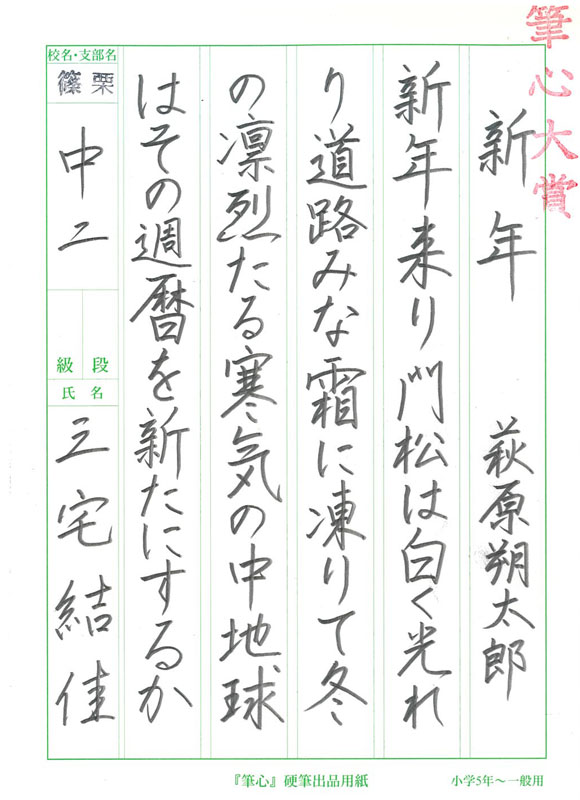 筆心大賞
新年 萩原朔太郎
新年来り門松は白く光れ
り道路みな霜に凍りて冬
の凛烈たる寒気の中地球
はその週暦を新たにするか
校名・支部名
篠栗
中二
段級
氏名
三宅結佳
『筆心』硬筆出品用紙
小学5年～一般用